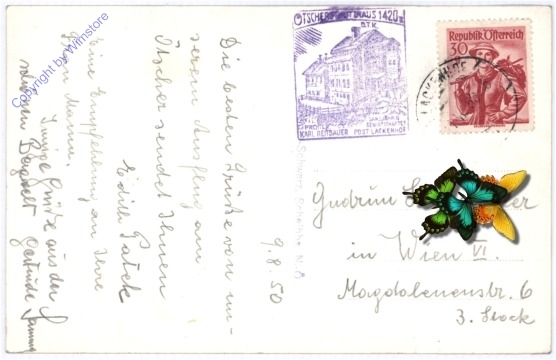 Copyright by Wlmstore
ÖTSCHERSCHUTZHAUS 1420m
Ö.T.K.
PÄCHTER
KARL REHBAUER POST LACKENHOF
GANZJÄHRIG BEWIRTSCHAFTET
Republik Österreich
30
LACKENHOF
Die besten Grüße von un-
serem Ausflug am
Ötscher sendet Ihnen
Edith Patek
Eine Empfehlung an Ihre
Frau Mama.
Innige Grüße aus der
schönen Bergwelt Gertrude
9.8.50
Gudrun
in Wien VI.
Magdalenenstr. 6
3. Stock